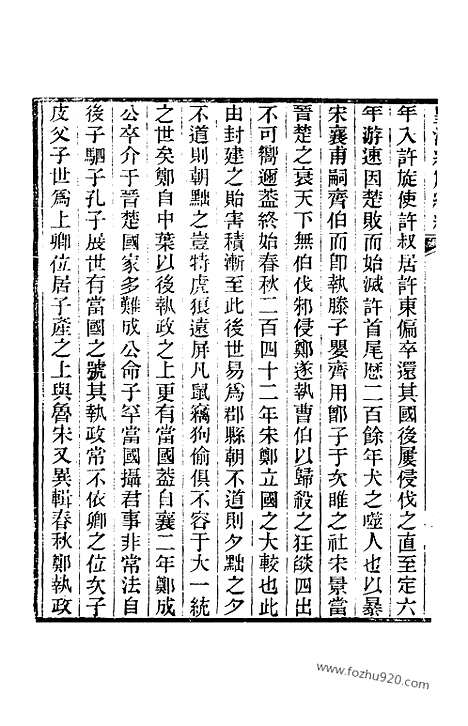 年入許旋使許叔居許東偏卒還其國後屢侵伐之直至定六
年游速因楚敗而始滅許首尾歷二百餘年犬之噬人也以暴
宋襄甫嗣齊伯而卽執滕子嬰齊用鄫子于次睢之社宋景當
晉楚之衰天下無伯伐邾侵鄭遂執曹伯以歸殺之狂燄四出
不可嚮邇蓋終始春秋二百四十二年宋鄭立國之大較也此
由封建之貽害積漸至此後世易爲郡縣朝不道則夕黜之夕
不道則朝黜之豈特虎狼遠屏凡鼠竊狗偷俱不容于大一統
之世矣鄭自中葉以後執政之上更有當國蓋自襄二年鄭成
公卒介于晉楚國家多難成公命子罕當國攝君事非常法自
後子駟子孔子展世有當國之號其執政常不依卿之位次子
皮父子世爲上卿位居子產之上與魯宋又異輯春秋鄭執政
www.fozhu920.com